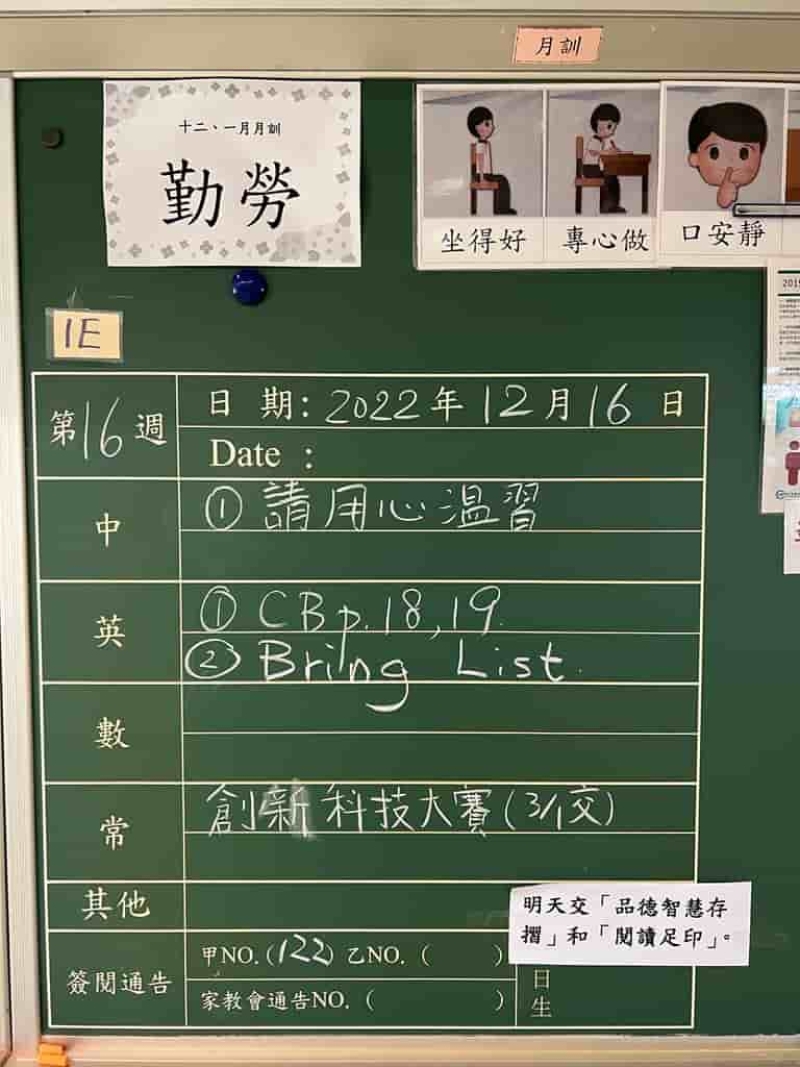 月訓
十二、一月月訓
勤勞
坐得好
專心做
口安靜
2019
1E
第16週
日 期: 2022年12月16日
Date :
中
① 請用心溫習
英
① CB p.18,19
② Bring List.
數
常
創新科技大賽(3/1交)
其他
明天交「品德智慧存
摺」和「閱讀足印」。
簽閱通告
甲NO.(122) 乙NO. ( )
家教會通告NO. ( )
日
生